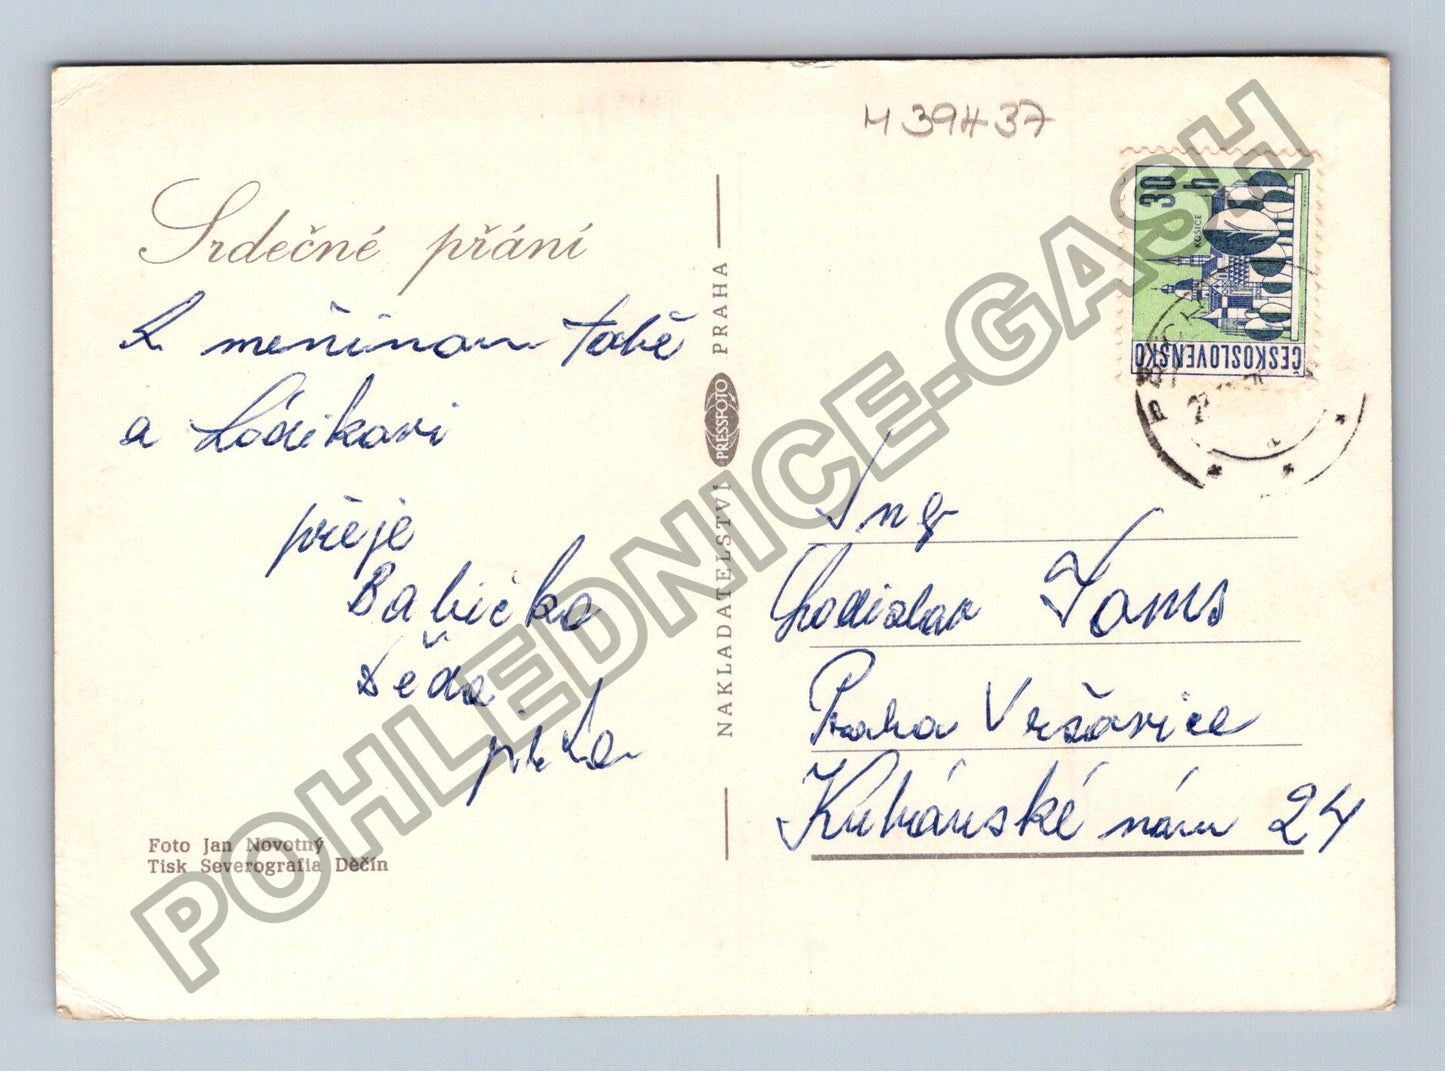 M 39437
Srdečné přání
K meninam tobě
a Ládíkovi
přeje
Babička
Děda
Foto Jan Novotný
Tisk Severografia Děčín
NAKLADATELSTVÍ PRESSFOTO PRAHA
30 h
KOŠICE
ČESKOSLOVENSKO
Ing
Ladislav
Praha Vršovice
Kubánské nám 24
POHLEDNICE-GASH